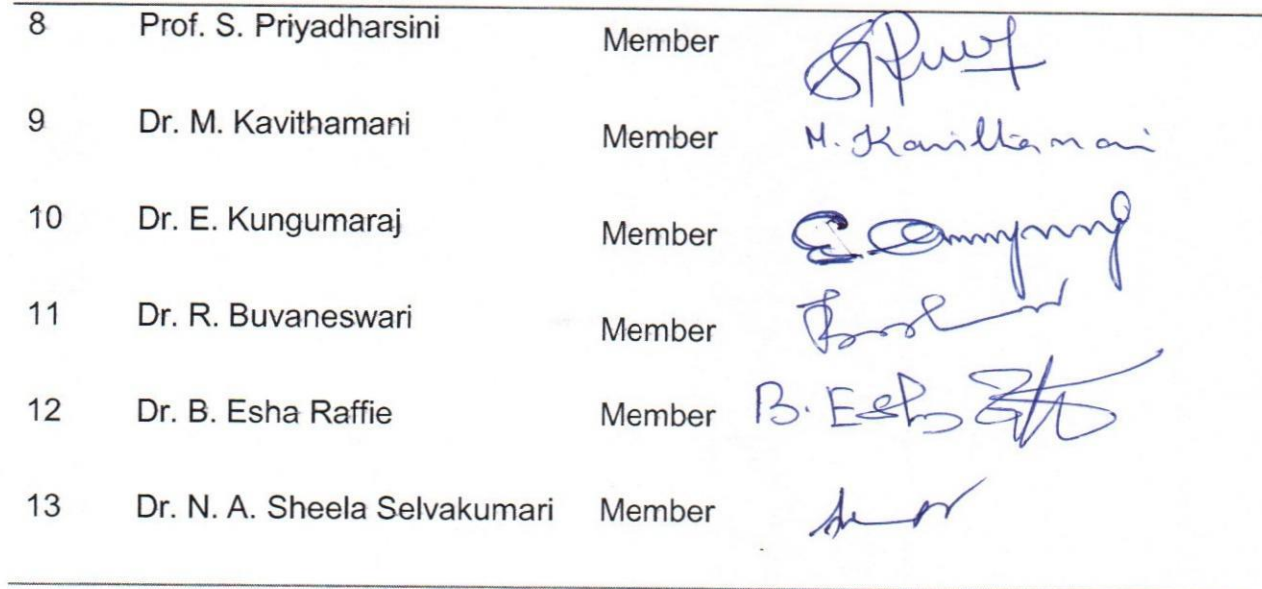 8 Prof. S. Priyadharsini Member
9 Dr. M. Kavithamani Member M. Kavithamani
10 Dr. E. Kungumaraj Member E.
11 Dr. R. Buvaneswari Member
12 Dr. B. Esha Raffie Member B. Esha
13 Dr. N. A. Sheela Selvakumari Member